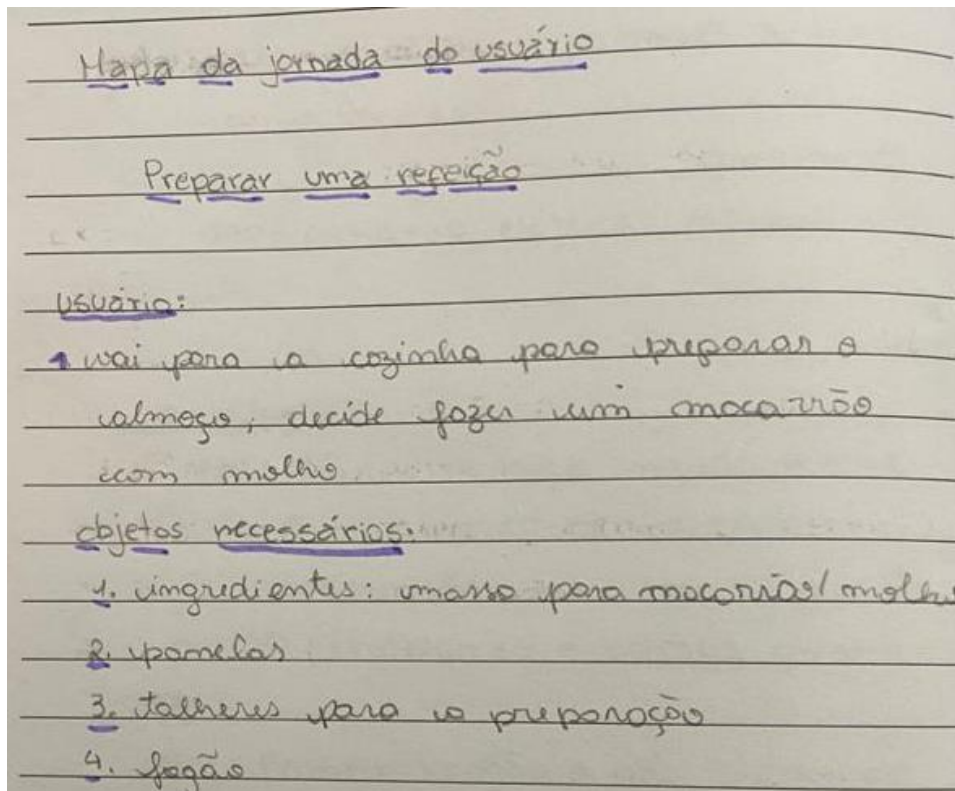 Mapa da jornada do usuário
Preparar uma refeição
usuário:
1 vai para a cozinha para preparar o
almoço, decide fazer um macarrão
com molho
objetos necessários:
1. ingredientes: massa para macarrão/molho
2. panelas
3. talheres para a preparação
4. fogão